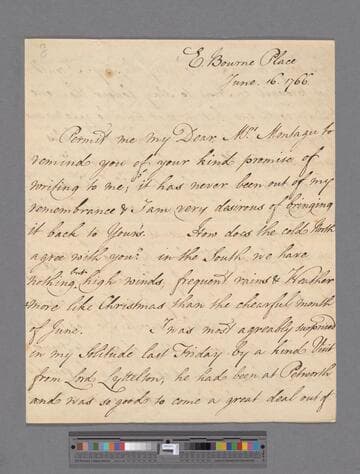 E Bourne Place
June. 16. 1766
Permit me my Dear Mrs Montagu to
remind you of your kind promise of
writing to me, it has never been out of my
remembrance & I am very desirous of bringing
it back to Yours. How does the cold North
agree with you? in the South we have
nothing but high winds, frequent rains & Weather
more like Christmas than the chearful month
of June. I was most agreably surprised
in my Solitude last Friday by a kind Visit
from Lord Lyttelton, he had been at Petworth
and was so good to come a great deal out of